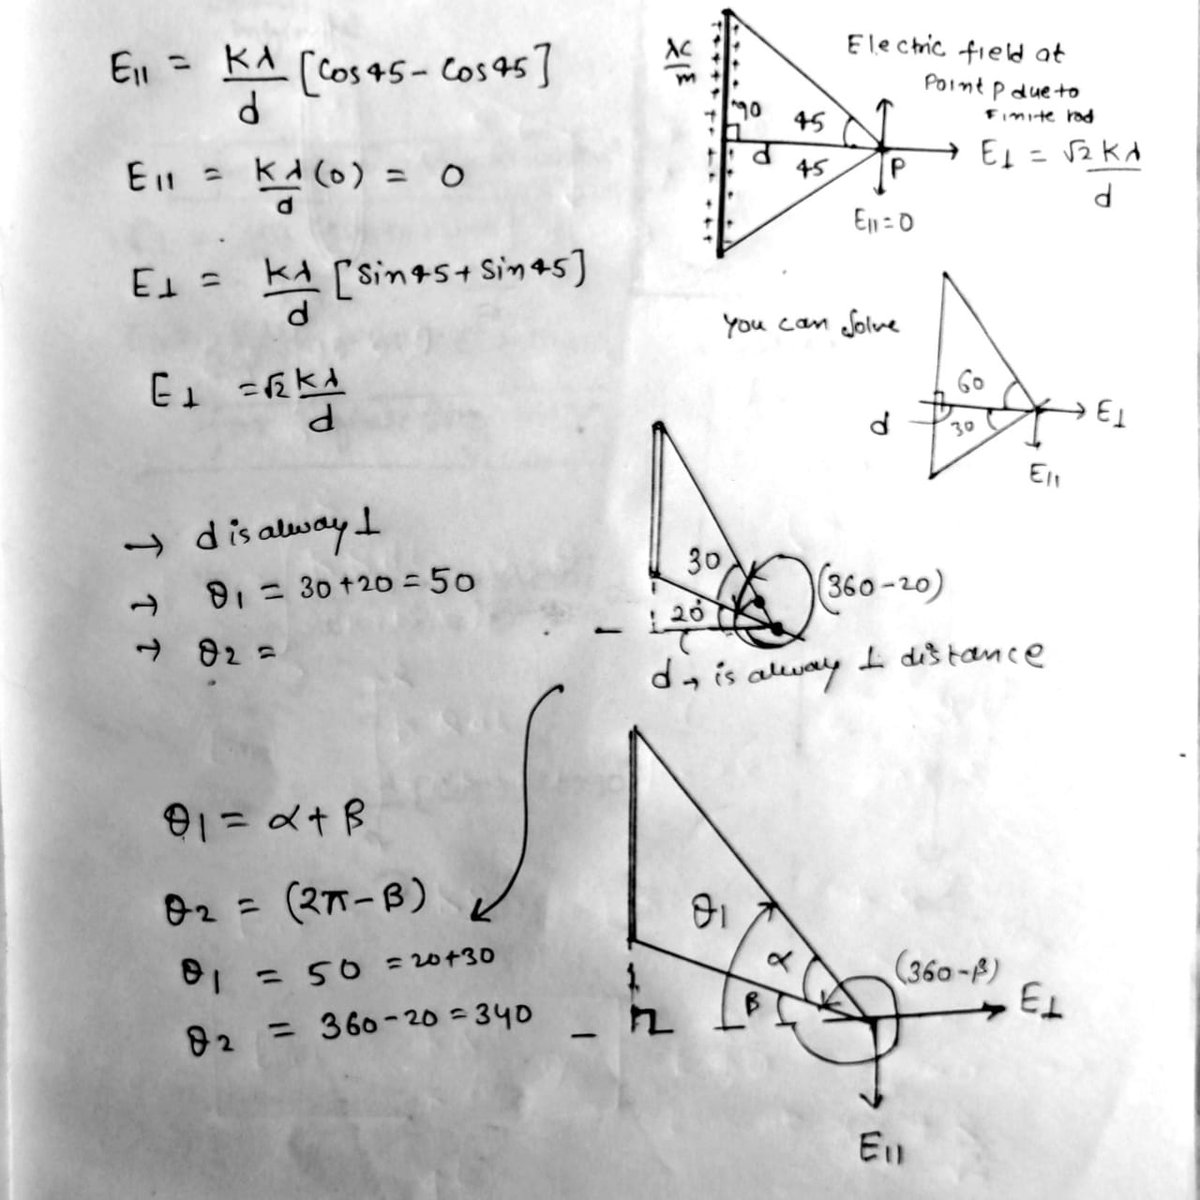 E|| = Kλ/d [Cos45 - Cos45]
E|| = Kλ/d (0) = 0
E⊥ = Kλ/d [Sin45 + Sin45]
E⊥ = √2 Kλ/d
λC/m
90
45
d
45
P
Electric field at
Point P due to
Finite rod
E⊥ = √2 Kλ/d
E|| = 0
You can Solve
60
30
d
E⊥
E||
→ d is alway ⊥
→ θ1 = 30+20 = 50
→ θ2 =
30
20
(360-20)
d → is alway ⊥ distance
θ1 = α + β
θ2 = (2π - β)
θ1 = 50 = 20+30
θ2 = 360-20 = 340
θ1
α
β
(360-β)
E⊥
E||